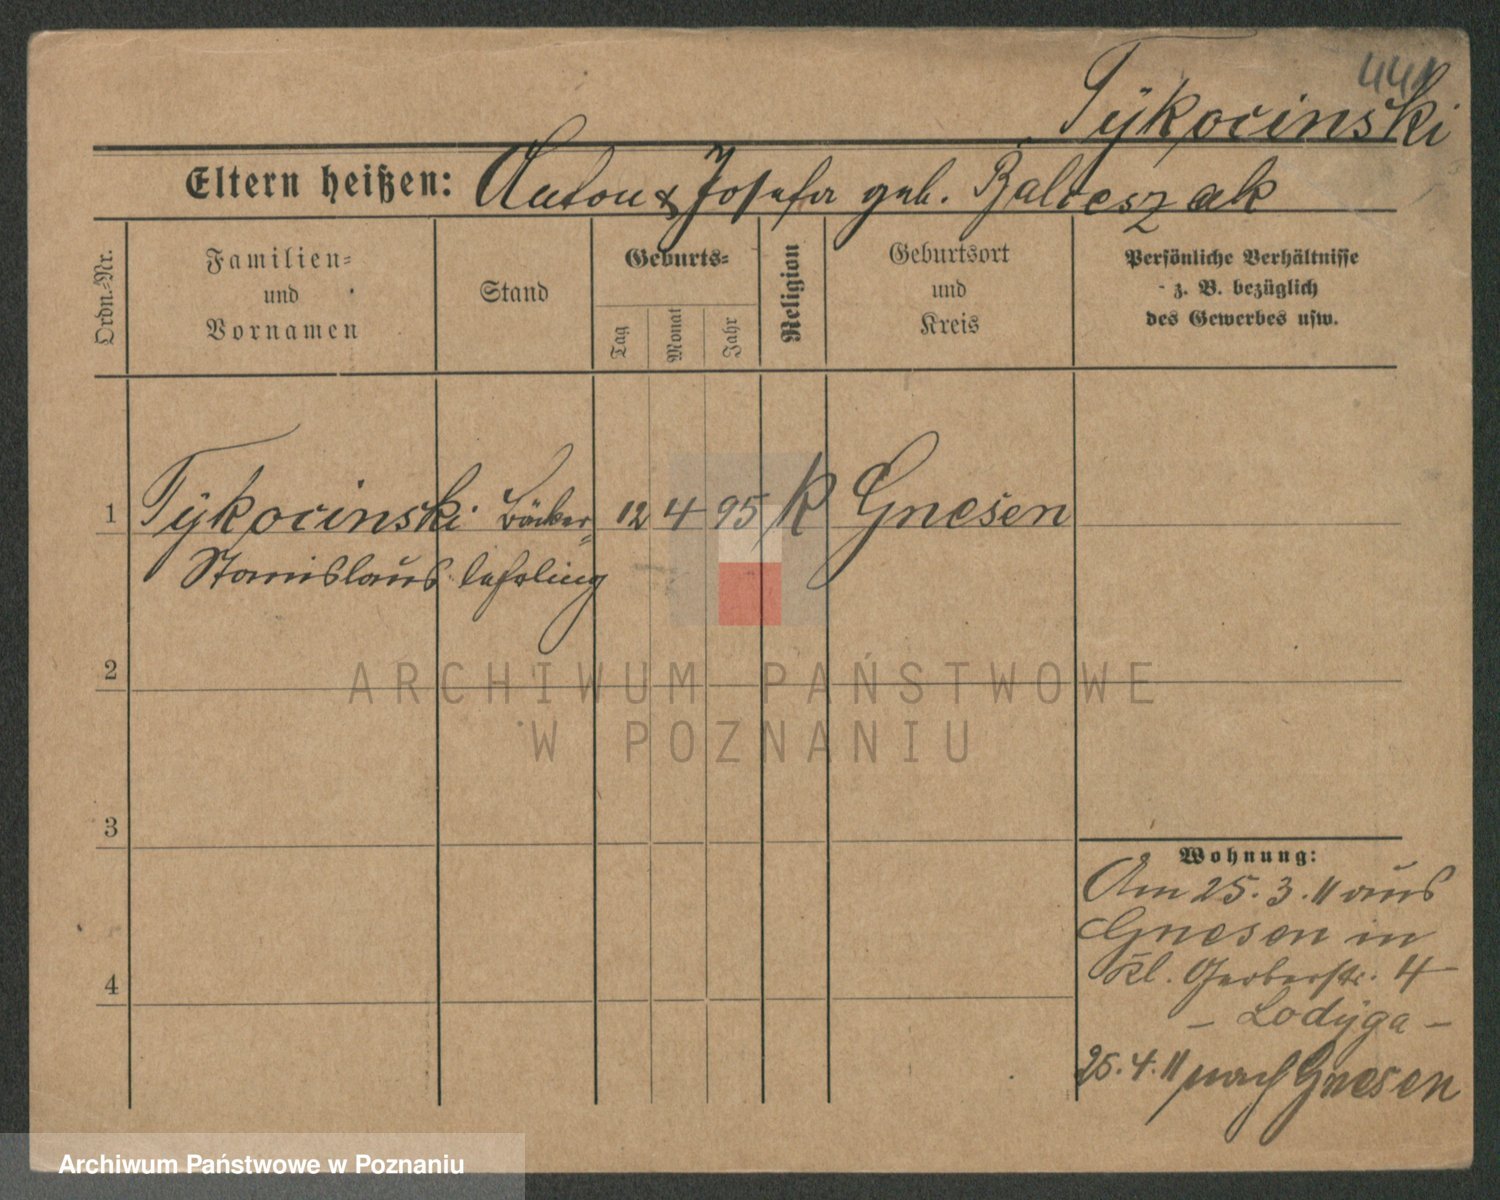 441
Tÿkocinski
Eltern heißen: Anton & Josefa geb. Balceszak
Ordn.-Nr.
Familien-
und
Vornamen
Stand
Geburts-
Tag
Monat
Jahr
Religion
Geburtsort
und
Kreis
Persönliche Verhältnisse
z. B. bezüglich
des Gewerbes usw.
1 Tÿkocinski Bäcker- 12 4 95 K Gnesen
Stanislaus lehrling
2
ARCHIWUM PAŃSTWOWE
W POZNANIU
3
Wohnung:
Am 25.3.11 aus
Gnesen in
4 Kl. Gerberstr. 4
- Lodÿga -
25.4.11 nach Gnesen
Archiwum Państwowe w Poznaniu